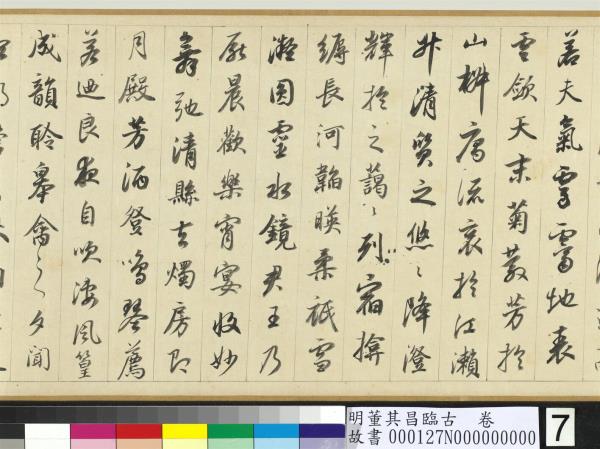 若夫氣霽地表
雲斂天末菊散芳於
山椒雁流哀於江瀨
升清質之悠〻降澄
輝於之藹〻列宿掩
縟長河韜暎柔祇雪
凝圓靈水鏡君王乃
厭晨歡樂宵宴收妙
舞弛清縣去燭房即
月殿芳酒登鳴琴薦
若迺良夜自凄風篁
成韻聆皋禽之夕聞
明董其昌臨古 卷
故書 000127N000000000
7